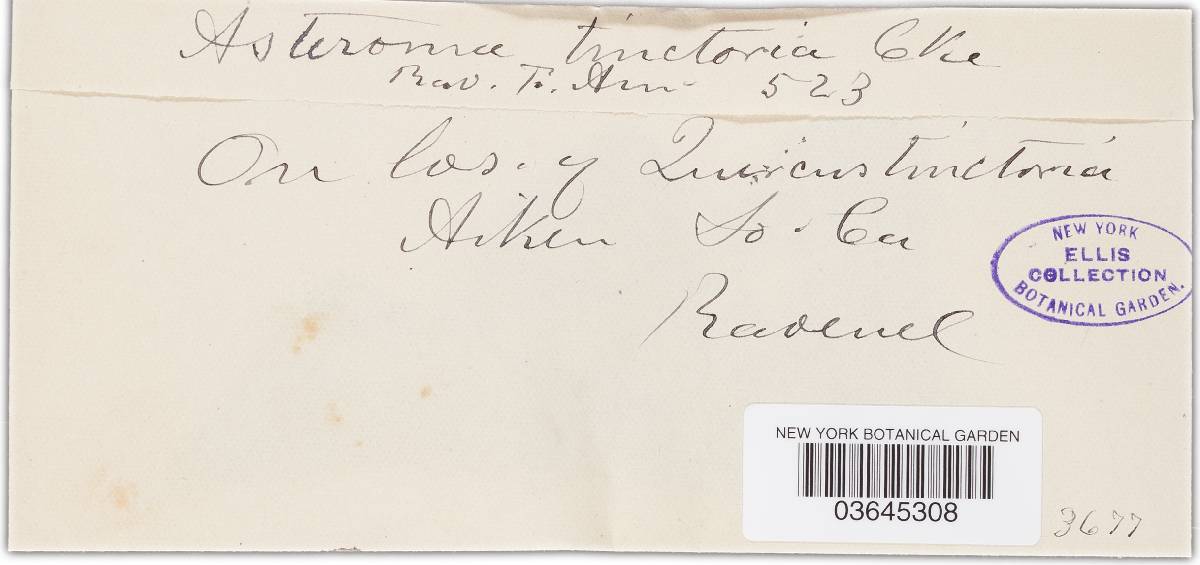 Asteroma tinctoria Cke
Rav. F. Am. 523
On lvs. of Quercus tinctoria
Aiken So. Ca
Ravenel
NEW YORK
ELLIS
COLLECTION
BOTANICAL GARDEN.
NEW YORK BOTANICAL GARDEN
03645308
3677